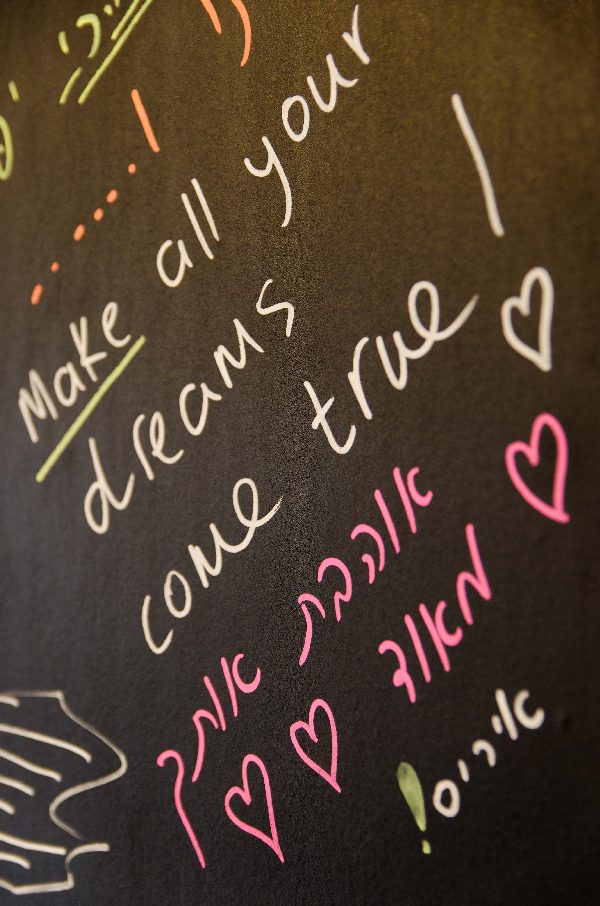 Make all your
dreams
come true!
אוהבת אותך
מאוד
איריס!